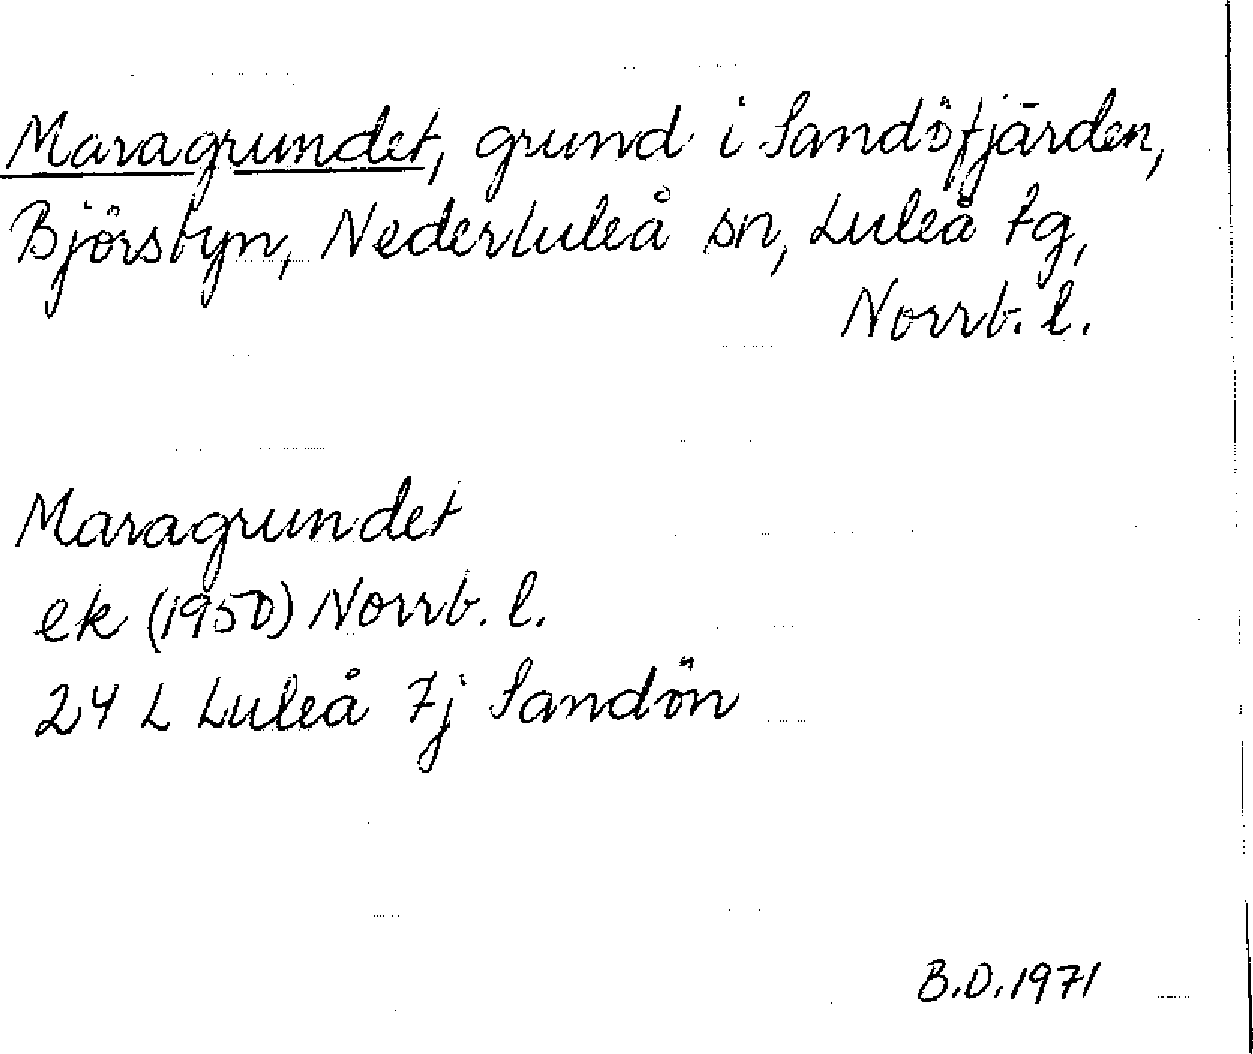 Maragrundet, grund i Sandöfjärden,
Björsbyn, Nederluleå sn, Luleå tg,
Norrb. l.
Maragrundet
ek (1950) Norrb. l.
24 L Luleå 7j Sandön
B.D. 1971